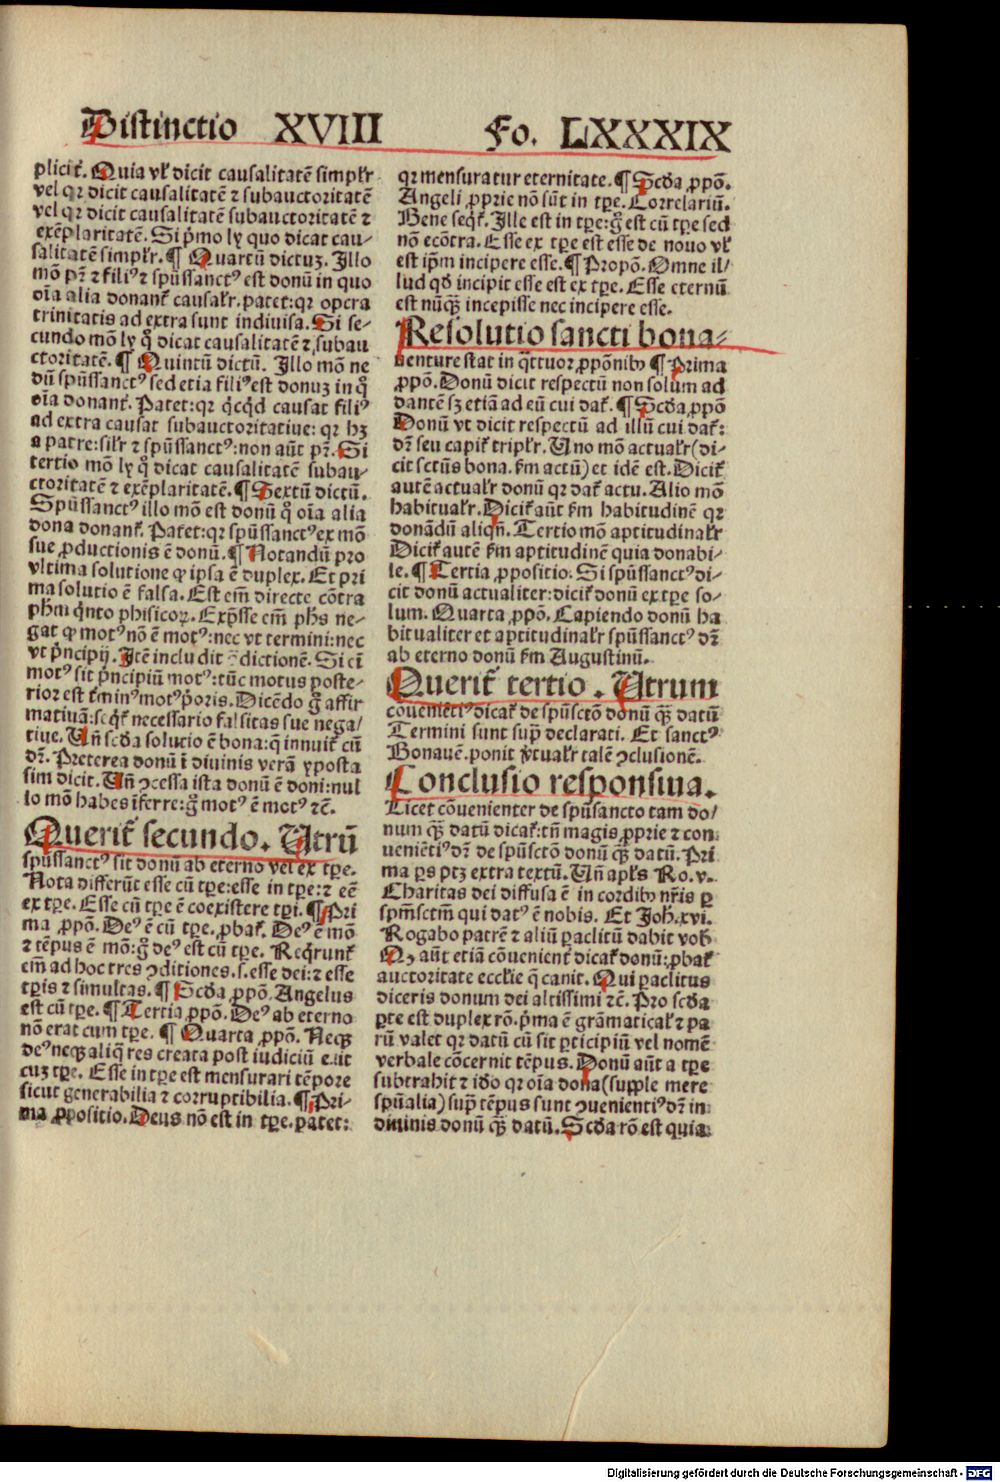 Distinctio XVIII Fo. LXXXIX
plicit̃. Quia vl̃ dicit causalitatē simplr̃
vel qꝛ dicit causalitatē ⁊ subauctoritatē
vel qꝛ dicit causalitatē subauctoritatē ⁊
exēplaritatē. Si p̃mo ly quo dicat cau-
salitatē simplr̃. ¶ Quartū dictuꝫ. Illo
mō pr̃ ⁊ filiꝰ ⁊ spūssanctꝰ est donū in quo
oīa alia donant̃ causalr̃. patet: qꝛ opera
trinitatis ad extra sunt indiuisa. Si se-
cundo mōly q̊ dicat causalitatē ⁊ subau
ctoritatē. ¶ Quintū dictū. Illo mō ne
dū spūssanctꝰ sed etia filiꝰ est donuꝫ in q̊
oīa donant̃. Patet: qꝛ qͥcqͥd causat filiꝰ
ad extra causat subauctoritatiue: qꝛ hꝫ
a patre: silr̃ ⁊ spūssanctꝰ: non aūt pr̃. Si
tertio mō ly q̊ dicat causalitatē subau-
ctoritatē ⁊ exēplaritatē. ¶ Sextū dictū.
Spūssanctꝰ illo mō est donū q̊ oīa alia
dona donant̃. Patet: qꝛ spūssanctꝰ ex mō
sue ꝓductionis ē donū. ¶ Notandū pro
vltima solutione ꝙ ipsa ē duplex. Et pri
ma solutio ē falsa. Est em̄ directe cōtra
ph̄m qͥnto phisicoꝝ. Exp̄sse em̄ ph̄s ne-
gat ꝙ motꝰ nō ē motꝰ: nec vt termini: nec
vt p̃ncipij. Itē includit ↄ̄dictionē. Si em̄
motꝰ sit p̃ncipiū motꝰ: tūc motus poste-
rior est t̃minꝰ motꝰ p̃oris. Dicēdo g̊ affir
matiuā: seqͥt̃ necessario falsitas sue nega-
tiue. Uñ scd̃a solutio ē bona: q̄ innuit̃ cū
dr̃. Preterea donū ī diuinis verā yposta
sim dicit. Uñ ↄcessa ista donū ē doni: nul
lo mō habes īferre: g̊ motꝰ ē motꝰ ⁊c̄.
Querit̃ secundo. Utrū
spūssanctꝰ sit donū ab eterno vel ex tp̄e.
Nota differūt esse cū tp̄e: esse in tp̄e: ⁊ eē
ex tp̄e. Esse cū tp̄e ē coexistere tp̄i. ¶ Pri
ma ꝓpō. Deꝰ ē cū tp̄e. ꝓbat̃. Deꝰ ē mō
⁊ tēpus ē mō: g̊ deꝰ est cū tp̄e. Reqͥrunt̃
em̄ ad hoc tres ↄditiones. s. esse dei: ⁊ esse
tp̄is ⁊ simultas. ¶ Scd̃a ꝓpō. Angelus
est cū tp̄e. ¶ Tertia ꝓpō. Deꝰ ab eterno
nō erat cum tp̄e. ¶ Quarta ꝓpō. Neqꝫ
deꝰ neqꝫ aliq̄ res creata post iudiciū erit
cuꝫ tp̄e. Esse in tp̄e est mensurari tēpore
sicut generabilia ⁊ corruptibilia. ¶ Pri-
ma ꝓpositio. Deus nō est in tp̄e. patet:
qꝛ mensuratur eternitate. ¶ Scd̃a ꝓpō.
Angeli ꝓprie nō sūt in tp̄e. Correlariū.
Bene seqͥt̃. Ille est in tp̄e: g̊ est cū tp̄e sed
nō ecōtra. Esse ex tp̄e est esse de nouo vl̃
est ip̄m incipere esse. ¶ Propō. Omne il-
lud qd̃ incipit esse est ex tp̄e. Esse eternū
est nūqꝫ̄ incepisse nec incipere esse.
Resolutio sancti bona-
uenture stat in qͣttuor ꝓpōnibꝰ ¶ Prima
ꝓpō. Donū dicit respectū non solum ad
dantē sꝫ etiā ad eū cui dat̃. ¶ Scd̃a ꝓpō
Donū vt dicit respectū ad illū cui dat̃:
dr̃ seu capit̃ triplr̃. Uno mō actualr̃ (di-
cit sctūs bona. ẜm actū) et idē est. Dicit̃
autē actualr̃ donū qꝛ dat̃ actu. Alio mō
habitualr̃. Dicit̃ aūt ẜm habitudinē qꝛ
donādū aliqn̄. Tertio mō aptitudinalr̃
Dicit̃ autē ẜm aptitudinē quia donabi-
le. ¶ Tertia ꝓpositio. Si spūssanctꝰ di-
cit donū actualiter: dicit̃ donū ex tp̄e so-
lum. Quarta ꝓpō. Capiendo donū ha
bitualiter et aptitudinalr̃ spūssanctꝰ dr̃
ab eterno donū ẜm Augustinū.
Querit̃ tertio. Utrum
cōueniētiꝰ dicat̃ de spūsctō donū qꝫ̄ datū
Termini sunt supͣ declarati. Et sanctꝰ
Bonauē. ponit v̓tualr̃ talē ↄclusionē.
Conclusio responsiua.
Licet cōuenienter de spūsancto tam do-
num qꝫ̄ datū dicat̃: tn̄ magis ꝓprie ⁊ con
ueniētiꝰ dr̃ de spūsctō donū qꝫ̄ datū. Pri
ma ps̄ ptꝫ extra textū. Uñ apl̃s Ro. v.
Charitas dei diffusa ē in cordibꝰ nr̃is ꝑ
spm̄sctm̄ qui datꝰ ē nobis. Et Joh̄. xvi.
Rogabo patrē ⁊ aliū ꝑaclitū dabit vob̄
Qꝫ aūt etiā cōuenient̃ dicat̃ donū: ꝓbat̃
auctoritate eccl̃ie q̄ canit. Qui ꝑaclitus
diceris donum dei altissimi ⁊c̄. Pro scd̃a
ꝑte est duplex rō. p̃ma ē grāmatical̃ ⁊ pa
rū valet qꝛ datū cū sit ꝑticipiū vel nomē
verbale cōcernit tēpus. Donū aūt a tp̄e
subtrahit ⁊ iō qꝛ oīa dona (supple mere
spūalia) supͣ tēpus sunt ↄuenientiꝰ dr̃ in
diuinis donū qꝫ̄ datū. Scd̃a rō est quia
Digitalisierung gefördert durch die Deutsche Forschungsgemeinschaft - DFG